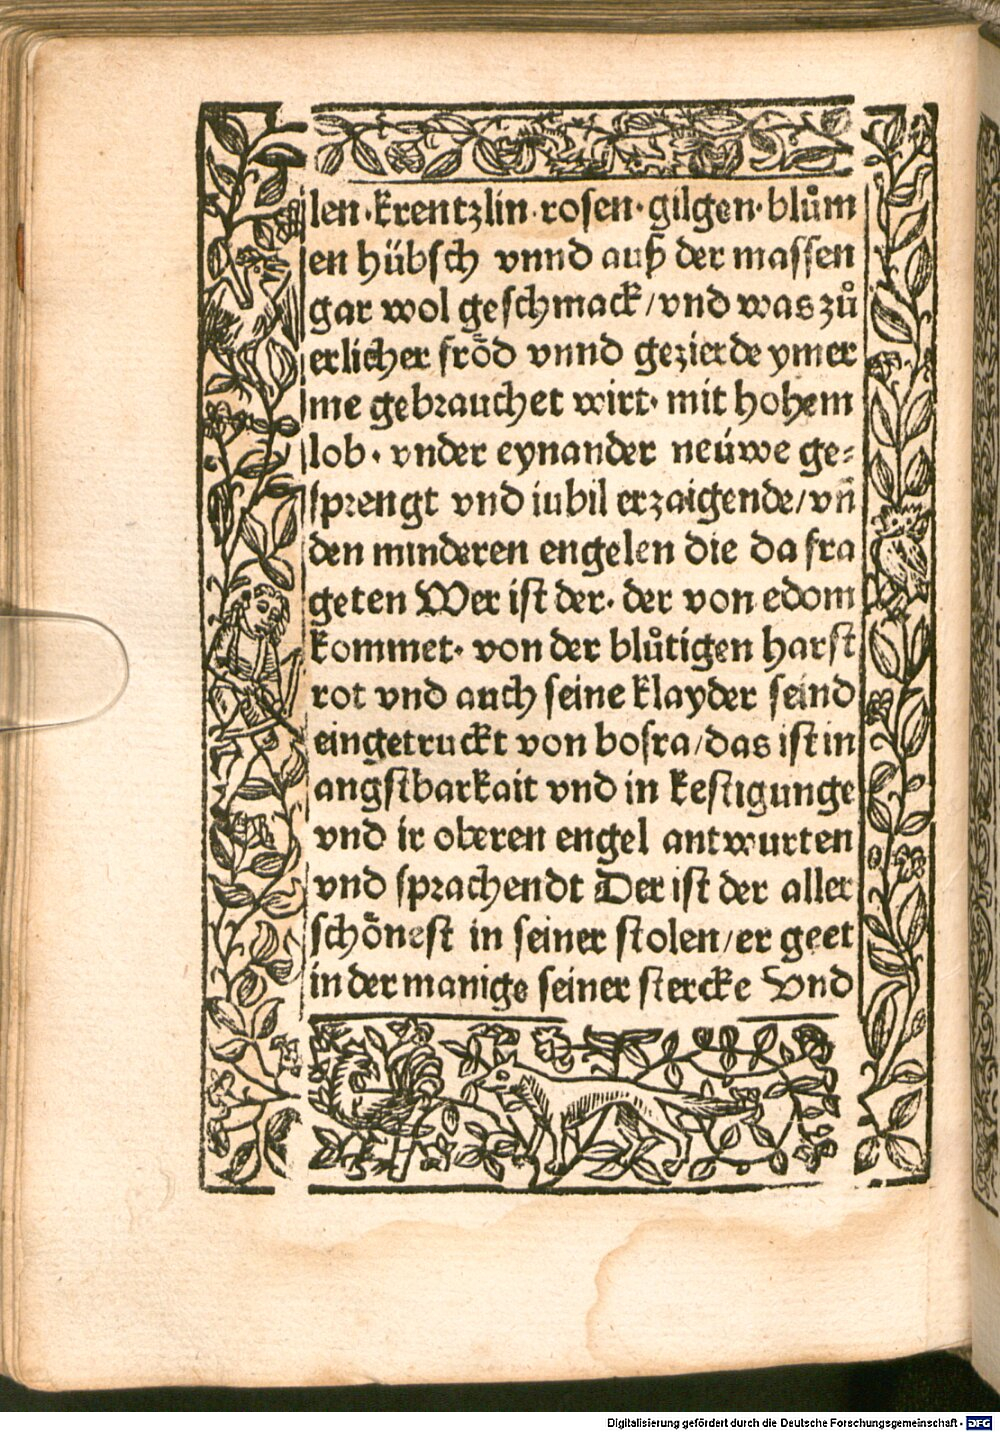 len·krentzlin·rosen·gilgen·blům
en hübsch vnnd auß der massen
gar wol geschmack/vnd was zů
erlicher frőd vnnd gezierde ymer
me gebrauchet wirt· mit hohem
lob· vnder eynander neúwe ge⸗
sprengt vnd iubil erzaigende/vn̄
den minderen engelen die da fra
geten Wer ist der· der von edom
kommet· von der blůtigen harst
rot vnd auch seine klayder seind
eingetruckt von bosra/das ist in
angstbarkait vnd in kestigunge
vnd ir oberen engel antwurten
vnd sprachendt Der ist der aller
schőnest in seiner stolen/er geet
in der manige seiner stercke Vnd
Digitalisierung gefördert durch die Deutsche Forschungsgemeinschaft - DFG